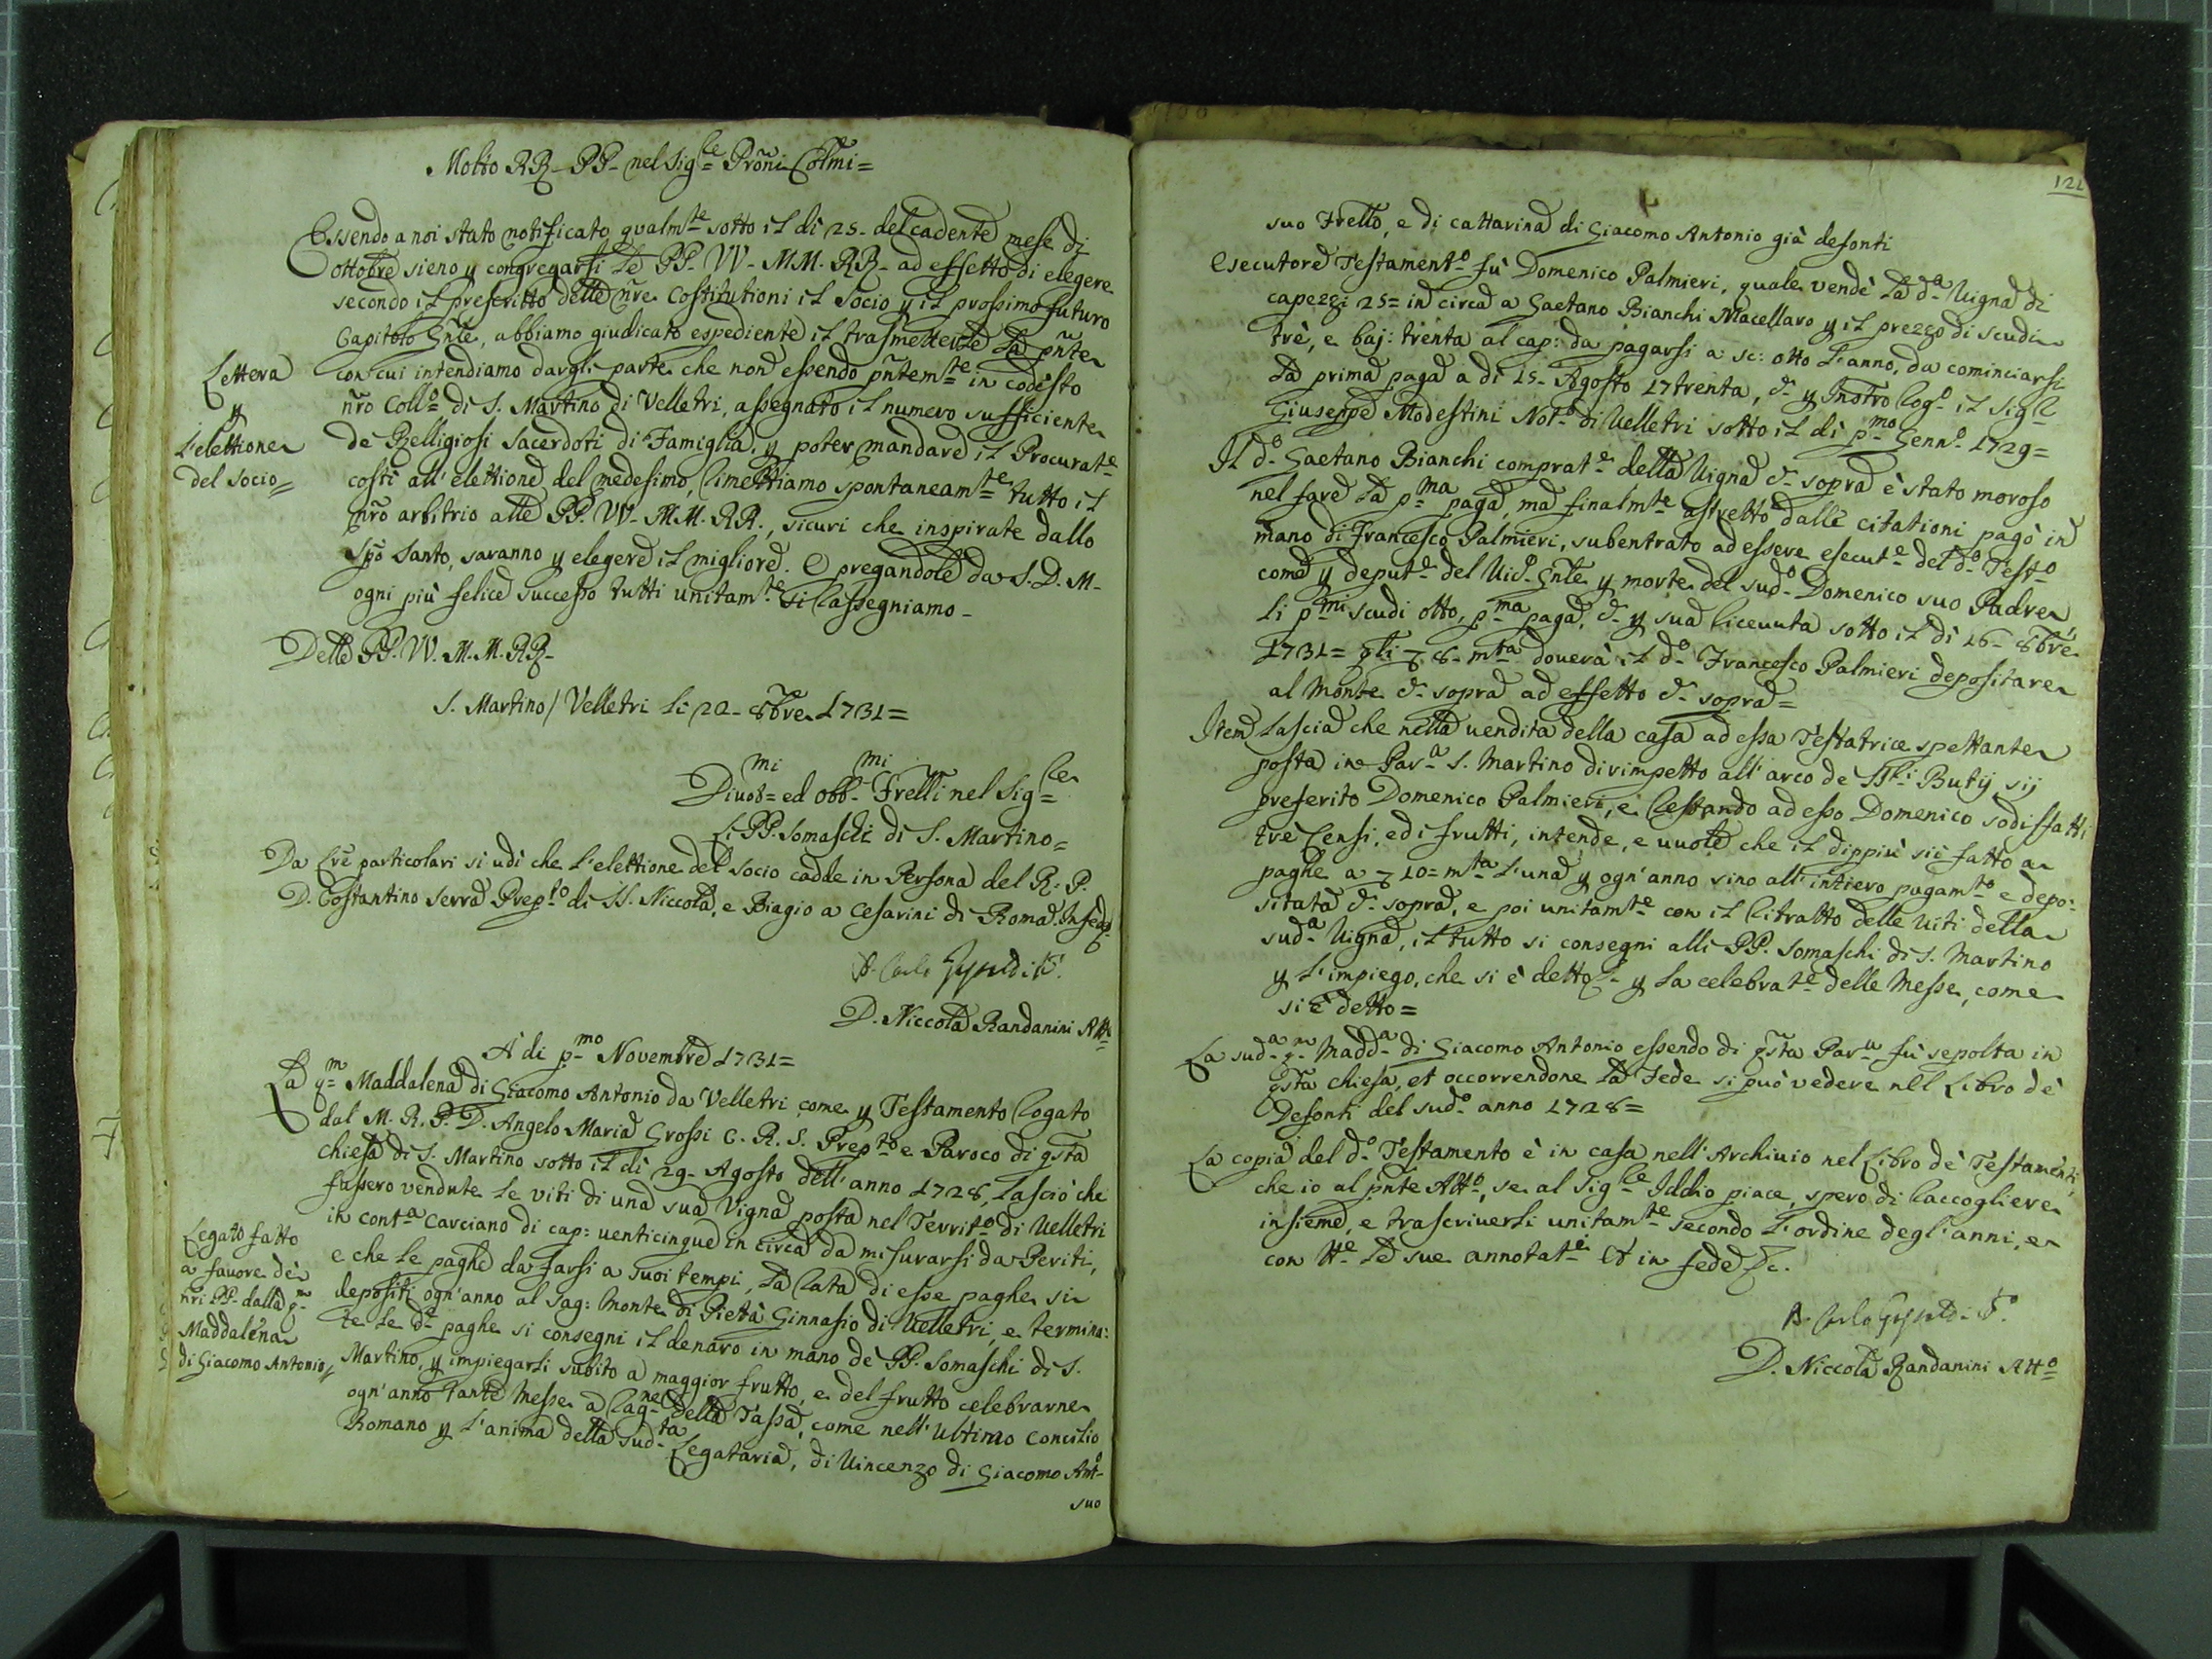 Molto RR. PP. nel Sig.re Proni Colmi=
Essendo a noi stato notificato, qualm.te sotto il dì 25. del cadente mese di
ottobre sieno p congregarsi le PP. VV. MM. RR. ad effetto di elegere
secondo il prescritto delle nre Costitutioni il Socio p il prossimo futuro
Capitolo Gnle, abbiamo giudicato espediente il trasmetterle la pnte
con cui intendiamo dargli parte che non essendo pntem.te in codesto
nro Coll.o di S. Martino di Velletri, assegnato il numero sufficiente
de Relligiosi Sacerdoti di Famiglia, p poter mandare il Procurat.e
costì all'elettione del medesimo, rimettiamo spontaneam.te tutto il
nro arbitrio alle PP. VV. MM. RR., sicuri che inspirate dallo
Spo Santo, saranno p elegere il migliore. E pregandole da S. D. M.
ogni più felice successo tutti unitam.te ci rassegniamo.
Lettera
p
l'elettione
del Socio=
Delle PP. VV. MM. RR.
S. Martino / Velletri li 22. 8bre 1731=
Divot.mi ed obb.mi Frelli nel Sig.re
Li PP. Somaschi di S. Martino=
Da lre particolari si udì che l'elettione del Socio cadde in Persona del R. P.
D. Costantino Serra Prep.to di SS. Niccola, e Biagio a Cesarini di Roma. In fede
D. Carlo
D. Niccola Randanini Att.o
A dì p.mo Novembre 1731=
La q.m Maddalena di Giacomo Antonio da Velletri come p Testamento rogato
dal M. R. P. D. Angelo Maria Grossi C. R. S. Prep.to e Paroco di qsta
chiesa di S. Martino sotto il dì 29. Agosto dell'anno 1728, lasciò che
fussero vendute le viti di una sua Vigna posta nel Territ.o di Velletri
in cont.a Carciano di cap: venticinque in circa da misurarsi da Periti,
e che le paghe da farsi a suoi tempi, la rata di esse paghe si
depositi ogn'anno al Sag: Monte di Pietà Ginnasio di Velletri, e termina:
te le d.e paghe si consegni il denaro in mano de PP. Somaschi di S.
Martino, p impiegarsi subito a maggior frutto, e del frutto celebrarne
ogn'anno tante Messe a rag.ne della Tassa, come nell'ultimo Concilio
Romano p l'anima della sud.ta Legataria, di Vincenzo di Giacomo Ant.o
suo
Legato fatto
a favore de
nri PP. dalla q.m
Maddalena
di Giacomo Antonio=
suo Frello, e di Cattarina di Giacomo Antonio già defonti
Esecutore Testament.o fù Domenico Palmieri, quale vendè la d.a Vigna di
capezzi 25= in circa a Gaetano Bianchi Macellaro p il prezzo di scudi
trè, e baj: trenta al cap: da pagarsi a sc: otto l'anno, da cominciarsi
la prima paga a dì 15. Agosto 17trenta, e p Instro rog.o il Sig.r
Giuseppe Modestini Not.o di Velletri sotto il dì p.mo Genn.o 1729=
Il d.o Gaetano Bianchi comprat.e della Vigna e sopra è stato moroso
nel fare la p.ma paga, ma finalm.te astretto dalle citationi pagò in
mano di Francesco Palmieri, subentrato ad essere esecut.e del d.o Test.o
come p deput.e del Vic.o Gnle p morte del sud.o Domenico suo Padre,
li p.mi scudi otto, p.ma paga, e p sua ricevuta sotto il dì 16. 8bre
1731= qli 8. m.ta doverà il d.o Francesco Palmieri depositare
al Monte e sopra ad effetto e sopra=
Item lascia che nella vendita della casa ad essa Testatrice spettante
posta in Par.a S. Martino dirimpetto all'arco de SSri Butij sij
preferito Domenico Palmieri, e restando ad esso Domenico sodisfatti
trè Censi, ed i frutti, intende, e vuole che il dippiù sii fatto a
paghe a 10= m.ta l'una p ogn'anno sino all'intiero pagam.to e depo:
sitata e sopra, e poi unitam.te con il ritratto delle viti della
sud.a Vigna, il tutto si consegni alli PP. Somaschi di S. Martino
p l'impiego, che si è detto, e p la celebrat.e delle Messe, come
si è detto=
La sud.a q.m Madd.a di Giacomo Antonio essendo di qsta Par.a fù sepolta in
qsta chiesa, et occorrendone la Fede si può vedere nel Libro de
Defonti del sud.o anno 1728=
La copia del d.o Testamento è in casa nell'Archivio nel Libro de Testamenti,
che io al pnte Att.o, se al Sig.re Iddio piace, spero di raccogliere
insieme, e trascriverli unitam.te secondo l'ordine degl'anni, e
con tt.e le sue annotat.i Et in fede &c.
D. Carlo
D. Niccola Randanini Att.o